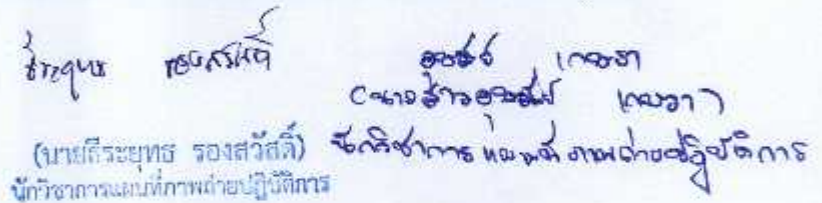 ธีระยุทธ รองสวัสดิ์
(นายธีระยุทธ รองสวัสดิ์)
นักวิชาการแผนที่ภาพถ่ายปฏิบัติการ
(นางสาว
นักวิชาการแผนที่ภาพถ่ายปฏิบัติการ